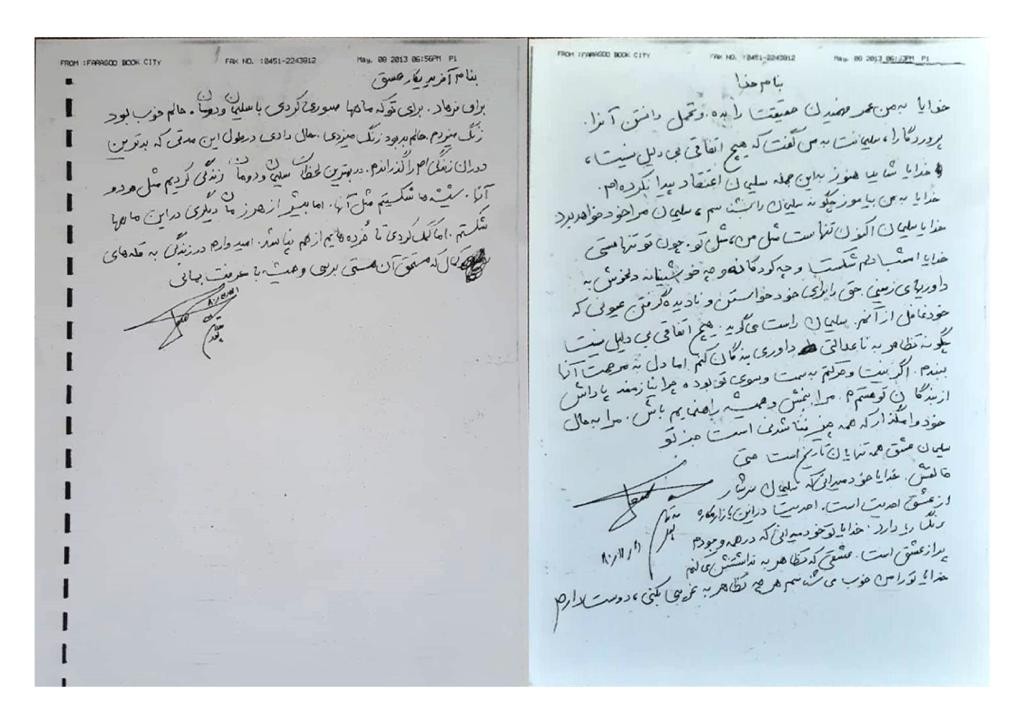 FROM :FARAGOO BOOK CITY FAX NO. :0451-2243812 May. 08 2013 06:56PM P1
بنام آفریدیگار عشق
برای فرهاد. برای تو که ماهها صبوری کردی با سلیمان و دومان. حالم خوب بود
زنگ میزدم. حالم بد بود زنگ میزدی. حال دادی در طول این مدتی که بدترین
دوران زندگی ام را گذراندم. در بهترین لحظات سلیمان و دومان زندگی کردیم مثل هر دو
آنها. شیشه ها شکستیم مثل آنها. اما بیشتر از هر زمان دیگری در این ماهها
شکستم. اما کمک کردی تا خُرده هایم از هم نپاشد. امیدوارم در زندگی به قله های
کمال که مستحق آن هستی برسی و همیشه با معرفت بمانی
FROM :FARAGOO BOOK CITY FAX NO. :0451-2243812 May. 08 2013 06:33PM P1
بنام خدا
خدایا به من عمر فهمیدن حقیقتت را بده. و تحمل دانستن آنرا.
پروردگارا، سلیمانت به من گفت که هیچ اتفاقی بی دلیل نیست،
خدایا شاید هنوز به این جمله سلیمان اعتقاد پیدا نکرده ام.
خدایا به من بیاموز چگونه سلیمان را بشناسم، سلیمان مرا خود خواهد برد
خدایا سلیمان اکنون تنهاست مثل من، مثل تو. چون تو تنهاستی
خدایا اشتباه دلم شکست و چه کودکانه و چه خوشبینانه دلخوش به
داوریهای زمینی حتی را برای خود خواستن و نادیده گرفتن عیوبی که
خود عامل از آنم. سلیمان راست می گوید. هیچ اتفاقی بی دلیل نیست
چگونه تظاهر به ناعدالتی داوری بندگان کنم اما دل به مرحمت آنها
ببندم. اگر نیت و حرکتم به سمت و سوی تو بوده چرا نیازمند پاداش
از بندگان تو هستم. مرا ببخش و همیشه راهنمایم باش. مرا به حال
خود وامگذار که همه چیز فنا شدنی است جز تو
سلیمان عشق همه تنهایان تاریخ است حتی
خالقش. خدایا خود میدانی که سلیمان سرشار
از عشق احدیت است. احدیت در این بازار مکاره
رنگ ریا دارد. خدایا تو خود میدانی که در همه وجودم
پر از عشق است. عشقی که تظاهر به نداشتنش می کنم
خدایا تو را من خوب می شناسم هر چه تظاهر به غریبی بکنی، دوستت دارم
۸۰/۱۱/۲۱